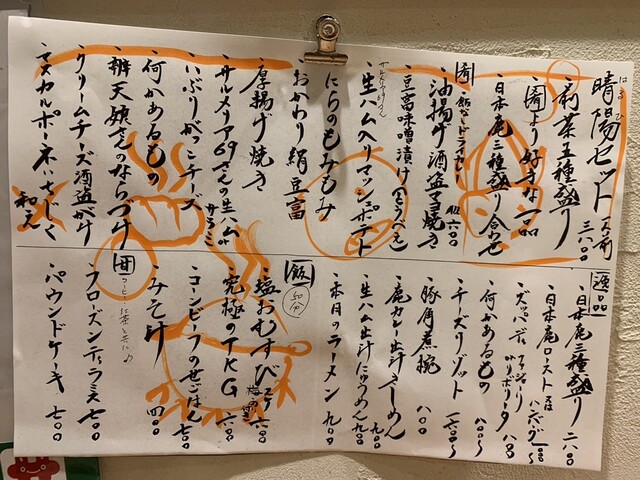 晴陽セット 一人前 三八〇〇
はるひ
・前菜五種盛り
・肴より好きな一品
・日本鹿三種盛り合わせ
・飯なしドライカレー
肴
・油揚げ酒盗マヨ焼き
・豆富味噌漬け(とうべえ)
・生ハムハリマッシュポテト
・にらのもみもみ
・おかわり絹豆富
・厚揚げ焼き
・サルメリア69さんの生ハムorサラミ
・いぶりがっこチーズ
・何かあるもの
・辨天娘さんのならづけ
・クリームチーズ酒盗がけ
・マスカルポーネいちじく和え
逸品
・日本鹿三種盛り 二八〇〇
・日本鹿ロースト
・何かあるもの 八〇〇〜
・チーズリゾット
・豚角煮椀 八〇〇
・鹿カレー出汁そーめん 九〇〇
・生ハム出汁にゅーめん 九〇〇
・本日のラーメン 九〇〇
飯
・塩おむすび
・究極のTKG
・コンビーフのせごはん 七〇〇
・みそ汁 四〇〇
甘
・フローズンティラミス 七〇〇
・パウンドケーキ 七〇〇